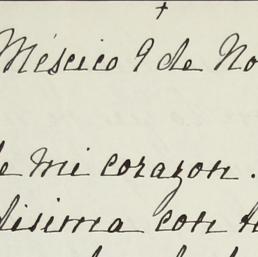 México 9 de No
de mi corazon.
disima con